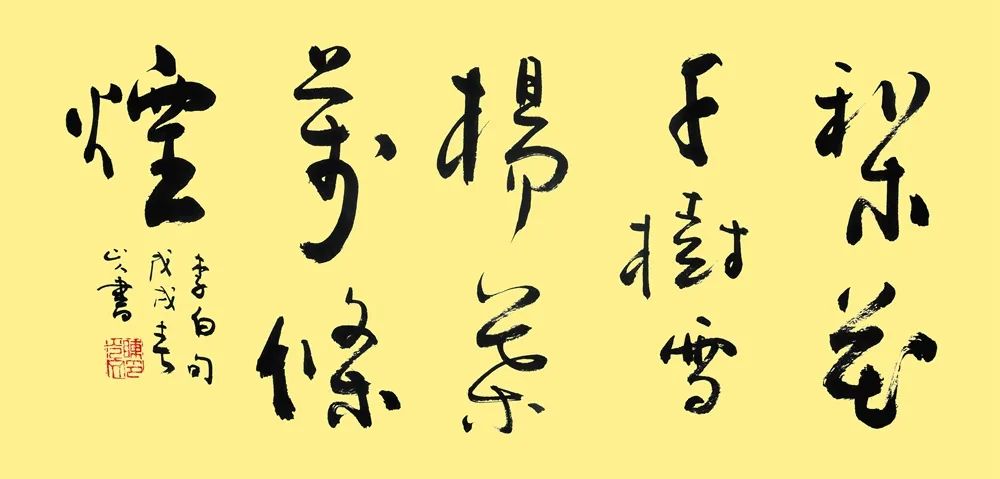 梨花
千樹雪
楊葉
萬條
煙
李白句
戊戌春
書